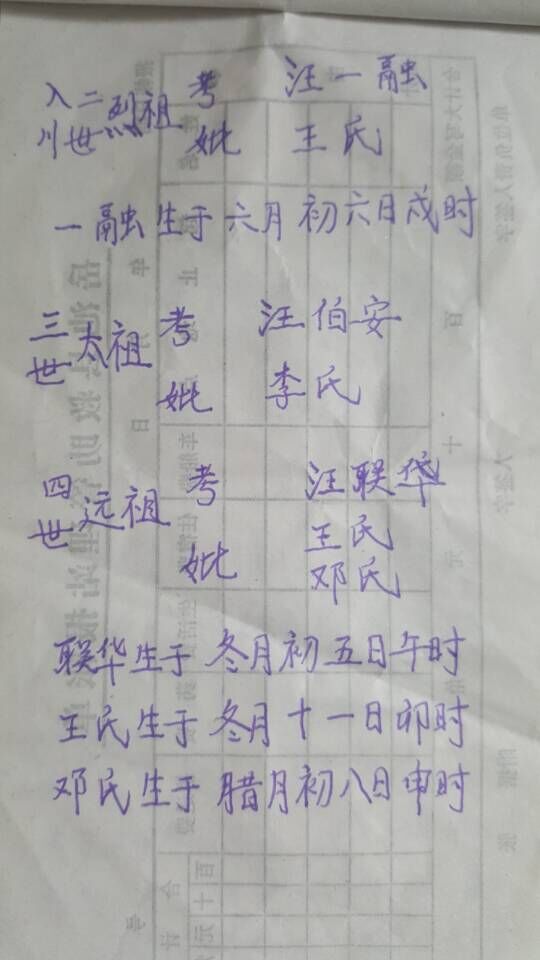 入川 二世 烈祖 考 汪一融
妣 王氏
一融生于六月初六日戌时
三世 太祖 考 汪伯安
妣 李氏
四世 远祖 考 汪联华
妣 王氏
邓氏
联华生于冬月初五日午时
王氏生于冬月十一日卯时
邓氏生于腊月初八日申时